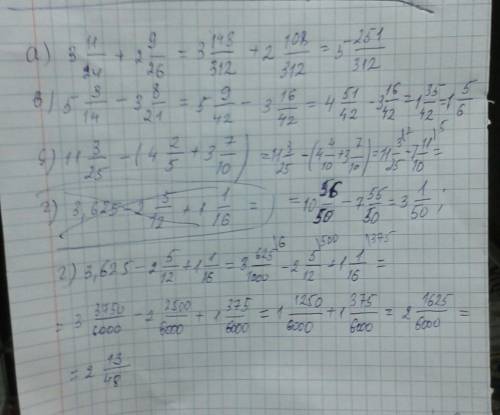 а) 3 11/24 + 2 9/26 = 3 143/312 + 2 108/312 = 5 251/312
в) 5 3/14 - 3 8/21 = 5 9/42 - 3 16/42 = 4 51/42 - 3 16/42 = 1 35/42 = 1 5/6
д) 11 3/25 - (4 2/5 + 3 7/10) = 11 3/25 - (4 4/10 + 3 7/10) = 11 3/25 - 7 11/10 =
= 10 56/50 - 7 55/50 = 3 1/50;
г) 3,625 - 2 5/12 + 1 1/16 =
г) 3,625 - 2 5/12 + 1 1/16 = 3 625/1000 \6 - 2 5/12 \500 + 1 1/16 \375 =
= 3 3750/6000 - 2 2500/6000 + 1 375/6000 = 1 1250/6000 + 1 375/6000 = 2 1625/6000 =
= 2 13/48